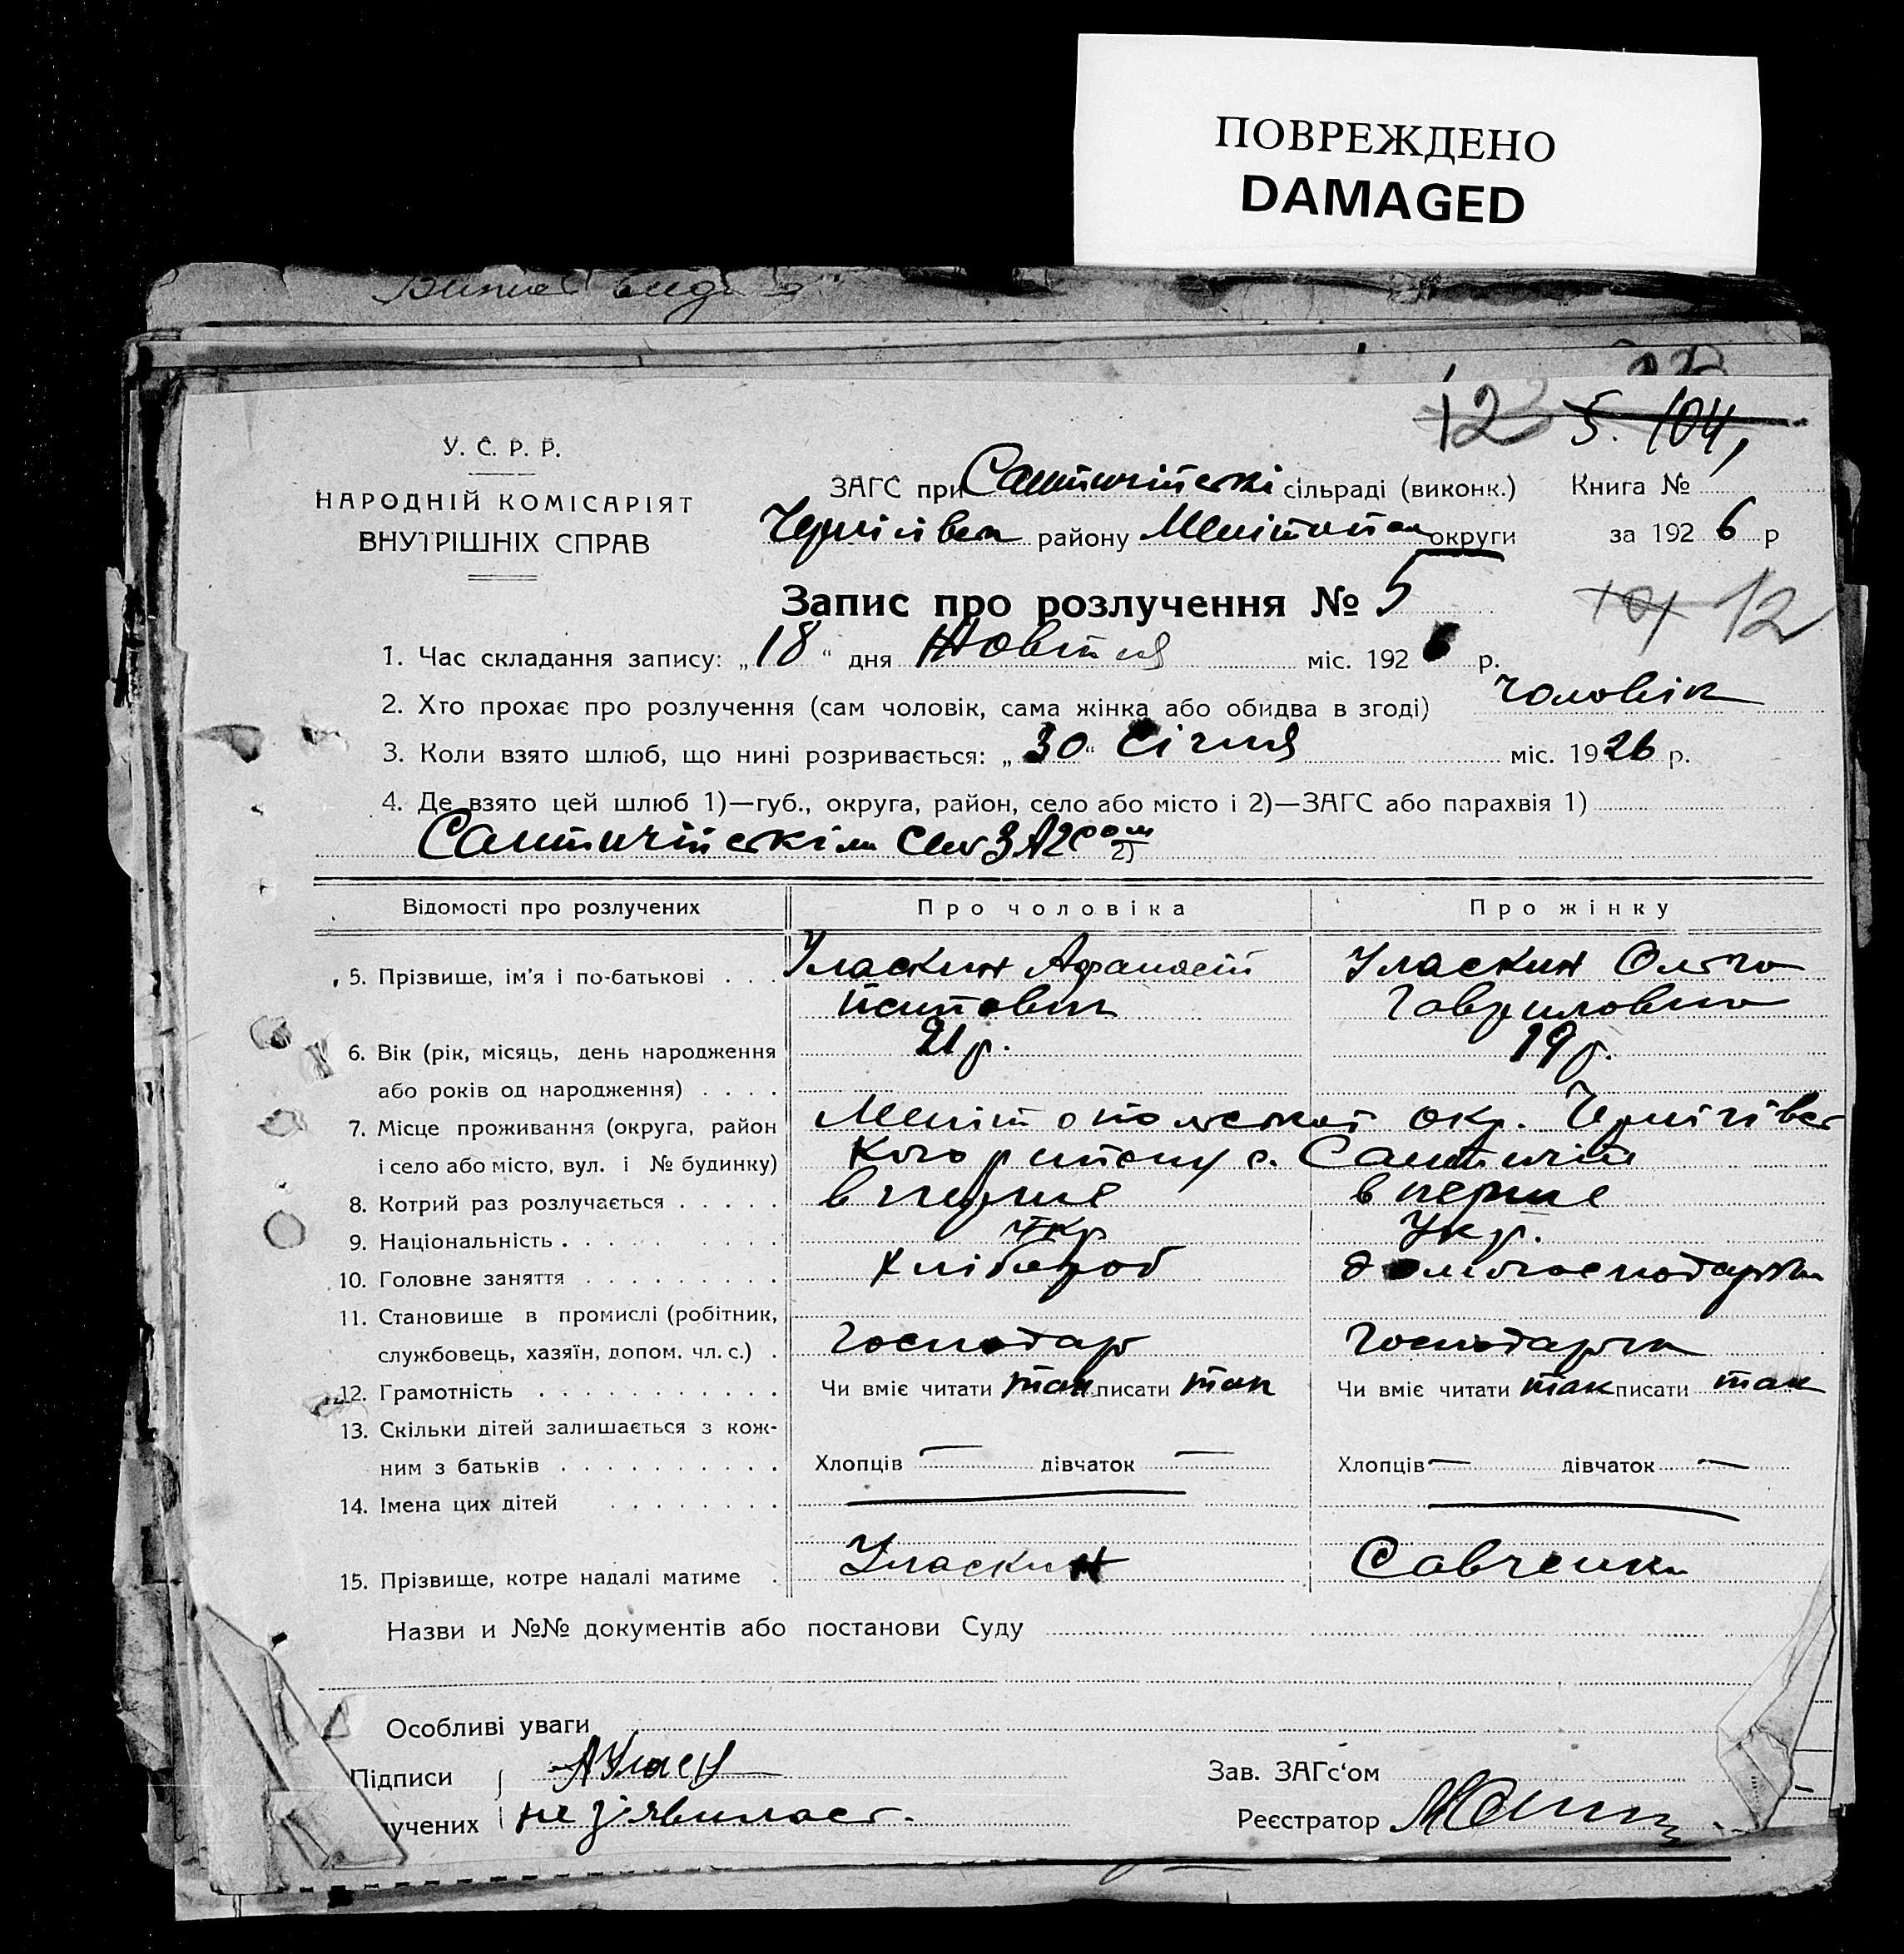 ПОВРЕЖДЕНО
DAMAGED
12 5. 104,
У. С. Р. Р.
НАРОДНІЙ КОМІСАРІЯТ
ВНУТРІШНІХ СПРАВ
ЗАГС при сільраді (виконк.) Книга №
району округи за 1926 р
Запис про розлучення № 5
101 12
1. Час складання запису: „18“ дня Жовтня міс. 1926 р.
2. Хто прохає про розлучення (сам чоловік, сама жінка або обидва в згоді) чоловік
3. Коли взято шлюб, що нині розривається: „30“ Січня міс. 1926 р.
4. Де взято цей шлюб 1)—губ., округа, район, село або місто і 2)—ЗАГС або парахвія 1)
2)
Відомості про розлучених Про чоловіка Про жінку
5. Прізвище, ім'я і по-батькові . . . Уласкин Афанасій Уласкин Ольга
Гавриловна
6. Вік (рік, місяць, день народження 21 р. 19 р.
або років од народження) . . . .
7. Місце проживання (округа, район Мелітопольской окр. Чернігівсь
і село або місто, вул. і № будинку) кого району с.
8. Котрий раз розлучається . . . . . вперше вперше
9. Національність . . . . . . . . Укр Укр.
10. Головне заняття . . . . . . . . . хлібороб домогосподарка
11. Становище в промислі (робітник,
службовець, хазяїн, допом. чл. с.) . Господар Господарка
12. Грамотність . . . . . . . . . . . Чи вміє читати так писати так Чи вміє читати так писати так
13. Скільки дітей залишається з кож-
ним з батьків . . . . . . . . . . Хлопців — дівчаток — Хлопців — дівчаток —
14. Імена цих дітей . . . . . . . .
15. Прізвище, котре надалі матиме . Уласкин Савченко
Назви и №№ документів або постанови Суду
Особливі уваги
Підписи Зав. ЗАГс‘ом
учених не зʼявилась. Реєстратор